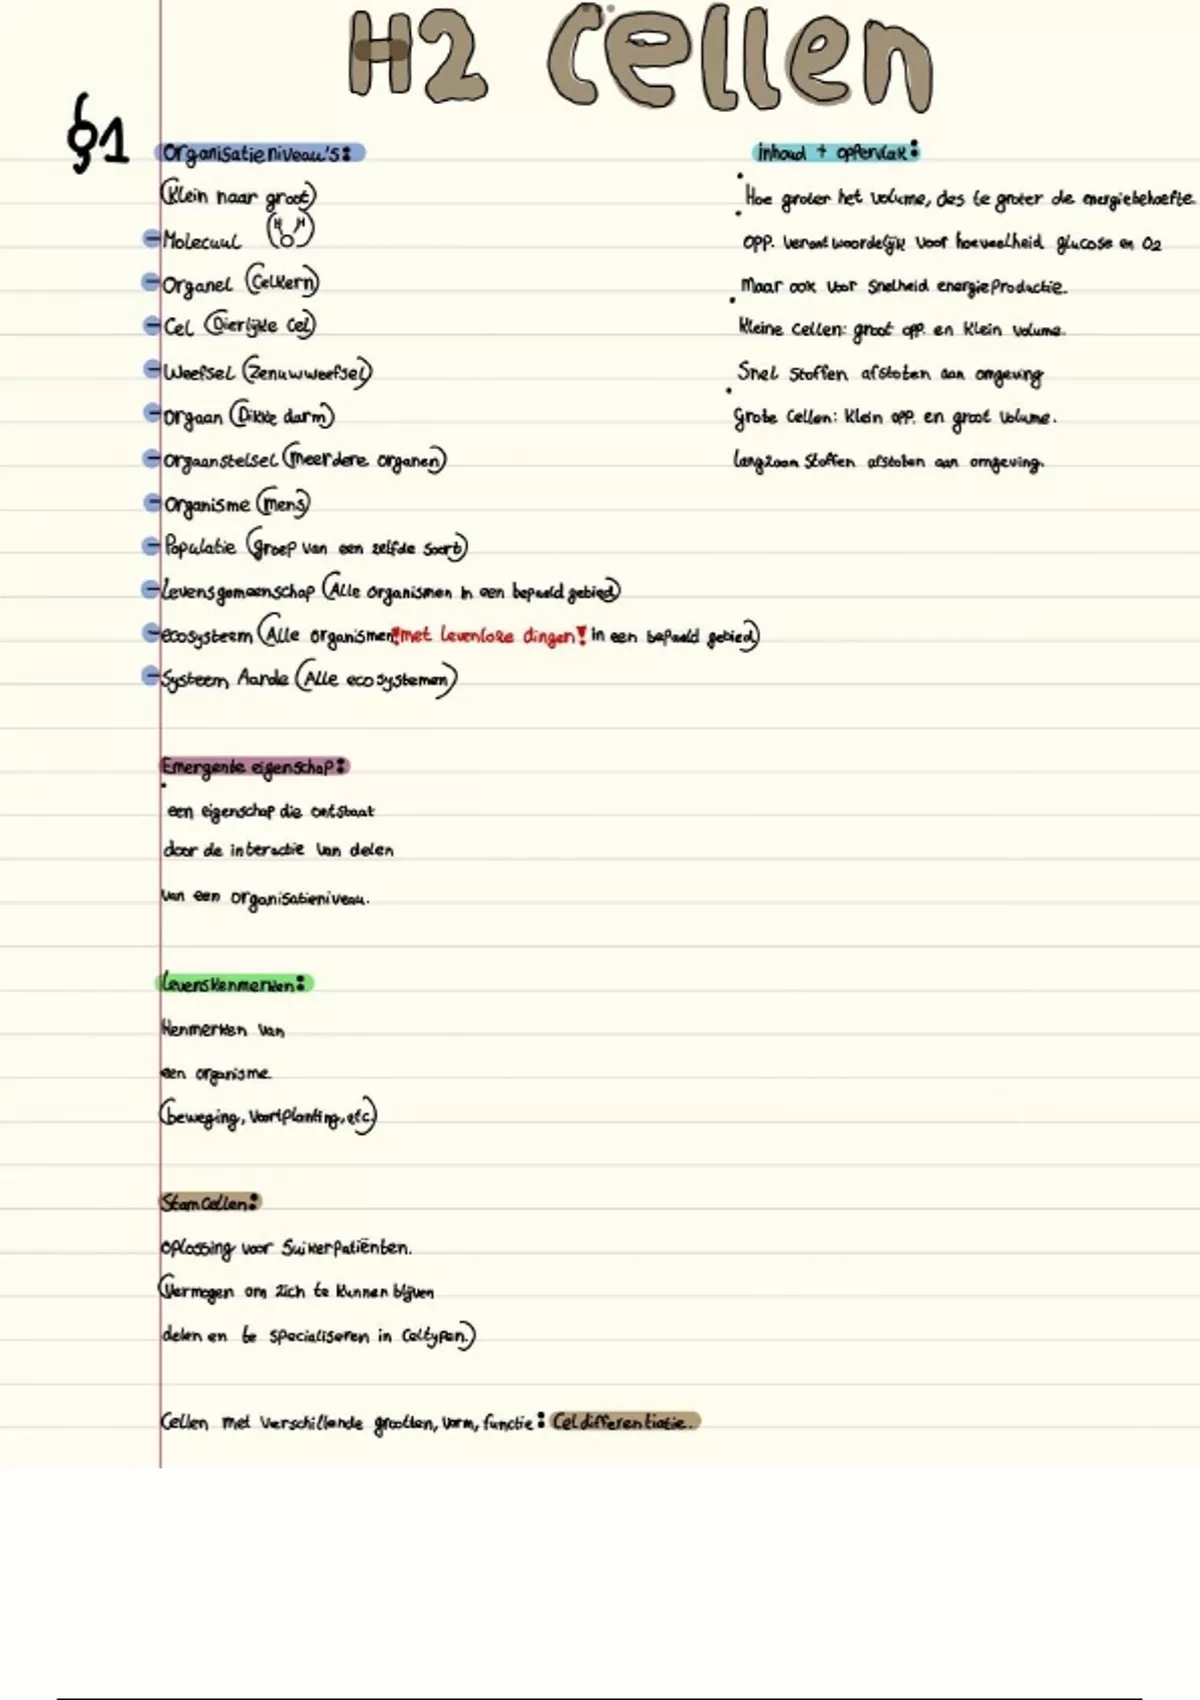 H2 Cellen
§1
Organisatieniveau's:
(Klein naar groot)
- Molecuul (H O H)
- Organel (Celkern)
- Cel (Dierlijke cel)
- Weefsel (Zenuwweefsel)
- Orgaan (Dikke darm)
- Orgaanstelsel (meerdere organen)
- Organisme (mens)
- Populatie (groep van een zelfde soort)
- Levensgemeenschap (Alle organismen in een bepaald gebied)
- ecosysteem (Alle organismen !met levenloze dingen! in een bepaald gebied)
- Systeem Aarde (Alle ecosystemen)
Emergente eigenschap:
een eigenschap die ontstaat
door de interactie van delen
van een organisatieniveau.
Levenskenmerken:
Kenmerken van
een organisme.
(beweging, voortplanting, etc.)
Stamcellen:
oplossing voor Suikerpatiënten.
(Vermogen om zich te kunnen blijven
delen en te specialiseren in celtypen.)
Cellen met verschillende grootten, vorm, functie: Celdifferentiatie.
inhoud + oppervlak:
Hoe groter het volume, des te groter de energiebehoefte.
opp. verantwoordelijk voor hoeveelheid glucose en O2
Maar ook voor snelheid energieproductie.
Kleine cellen: groot opp. en klein volume.
Snel stoffen afstoten aan omgeving
Grote cellen: klein opp. en groot volume.
langzaam stoffen afstoten aan omgeving.